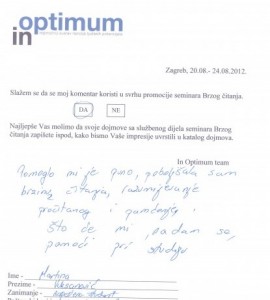 optimum
in
Zagreb, 20.08.- 24.08.2012.
Slažem se da se moj komentar koristi u svrhu promocije seminara Brzog čitanja.
DA NE
Najljepše Vas molimo da svoje dojmove sa službenog dijela seminara Brzog
čitanja zapišete ispod, kako bismo Vaše impresije uvrstili u katalog dojmova.
In Optimum team
Pomoglo mi je puno, poboljšala sam
brzinu čitanja, razumijevanje
pročitanog i pamćenje
što će mi, nadam se,
pomoći pri studiju
Ime - Martina
Prezime -
Zanimanje -